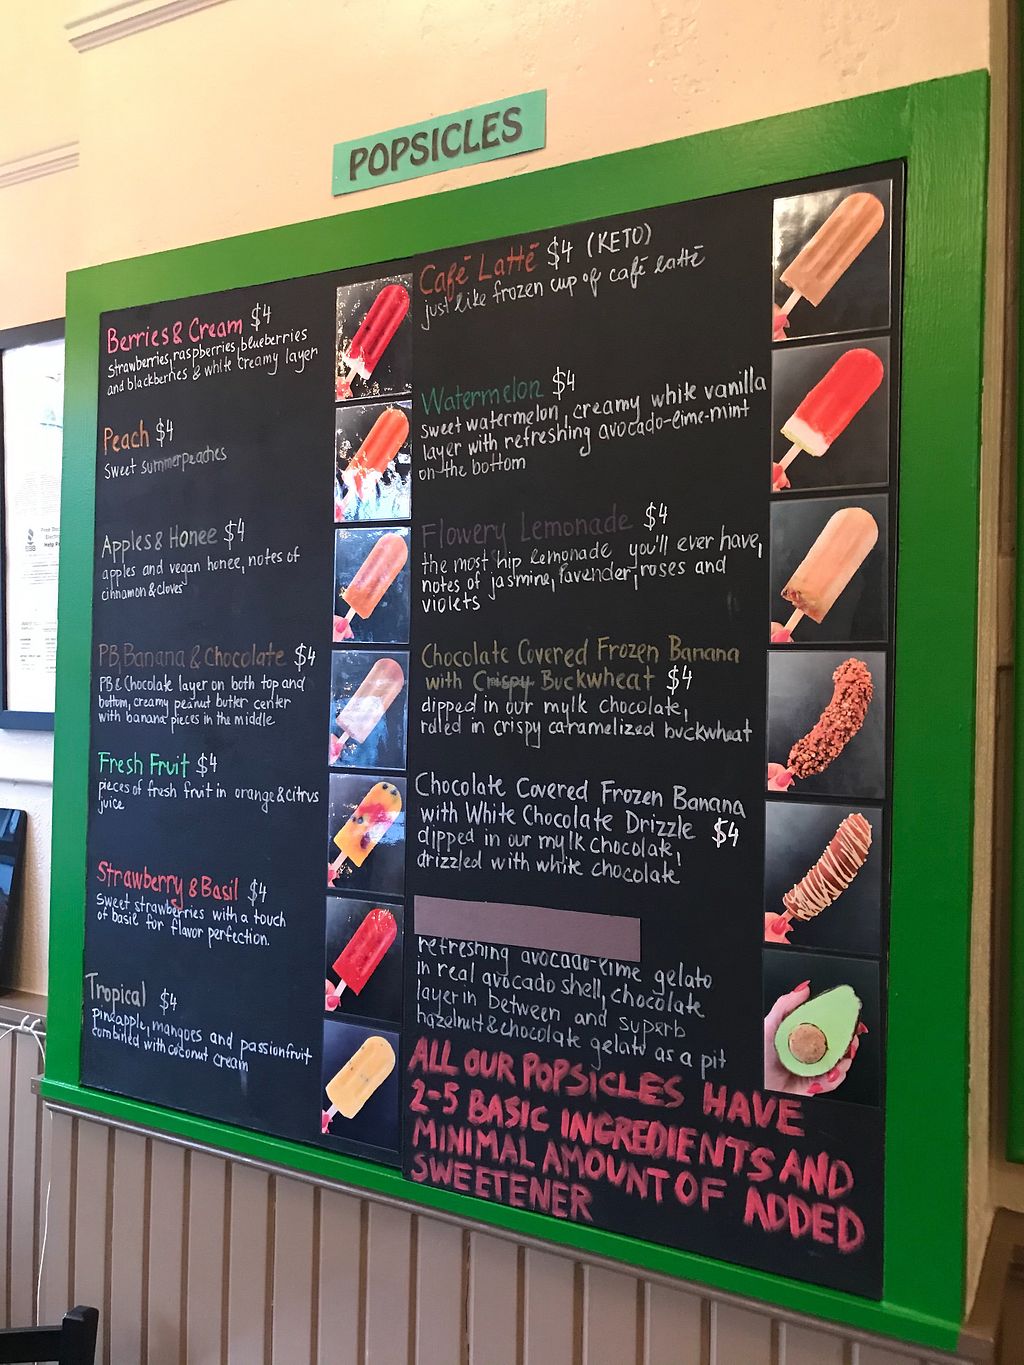 POPSICLES
Berries & Cream $4
Strawberries, raspberries, blueberries
and blackberries & white creamy layer
Peach $4
Sweet summer peaches
Apples & Honee $4
apples and vegan honee, notes of
cinnamon & cloves
PB, Banana & Chocolate $4
PB & Chocolate layer on both top and
bottom, creamy peanut butter center
with banana pieces in the middle
Fresh Fruit $4
pieces of fresh fruit in orange & citrus
juice
Strawberry & Basil $4
Sweet strawberries with a touch
of basil for flavor perfection.
Tropical $4
Pineapple, mangoes and passionfruit
combined with coconut cream
Café Latté $4 (KETO)
just like frozen cup of café latté
Watermelon $4
sweet watermelon, creamy white vanilla
layer with refreshing avocado-lime-mint
on the bottom
Flowery Lemonade $4
the most hip lemonade you'll ever have,
notes of jasmine, lavender, roses and
violets
Chocolate Covered Frozen Banana
with Crispy Buckwheat $4
dipped in our mylk chocolate,
rolled in crispy caramelized buckwheat
Chocolate Covered Frozen Banana
with White Chocolate Drizzle $4
dipped in our mylk chocolate,
drizzled with white chocolate!
refreshing avocado-lime gelato
in real avocado shell, chocolate
layer in between and superb
hazelnut & chocolate gelato as a pit
ALL OUR POPSICLES HAVE
2-5 BASIC INGREDIENTS AND
MINIMAL AMOUNT OF ADDED
SWEETENER
BBB